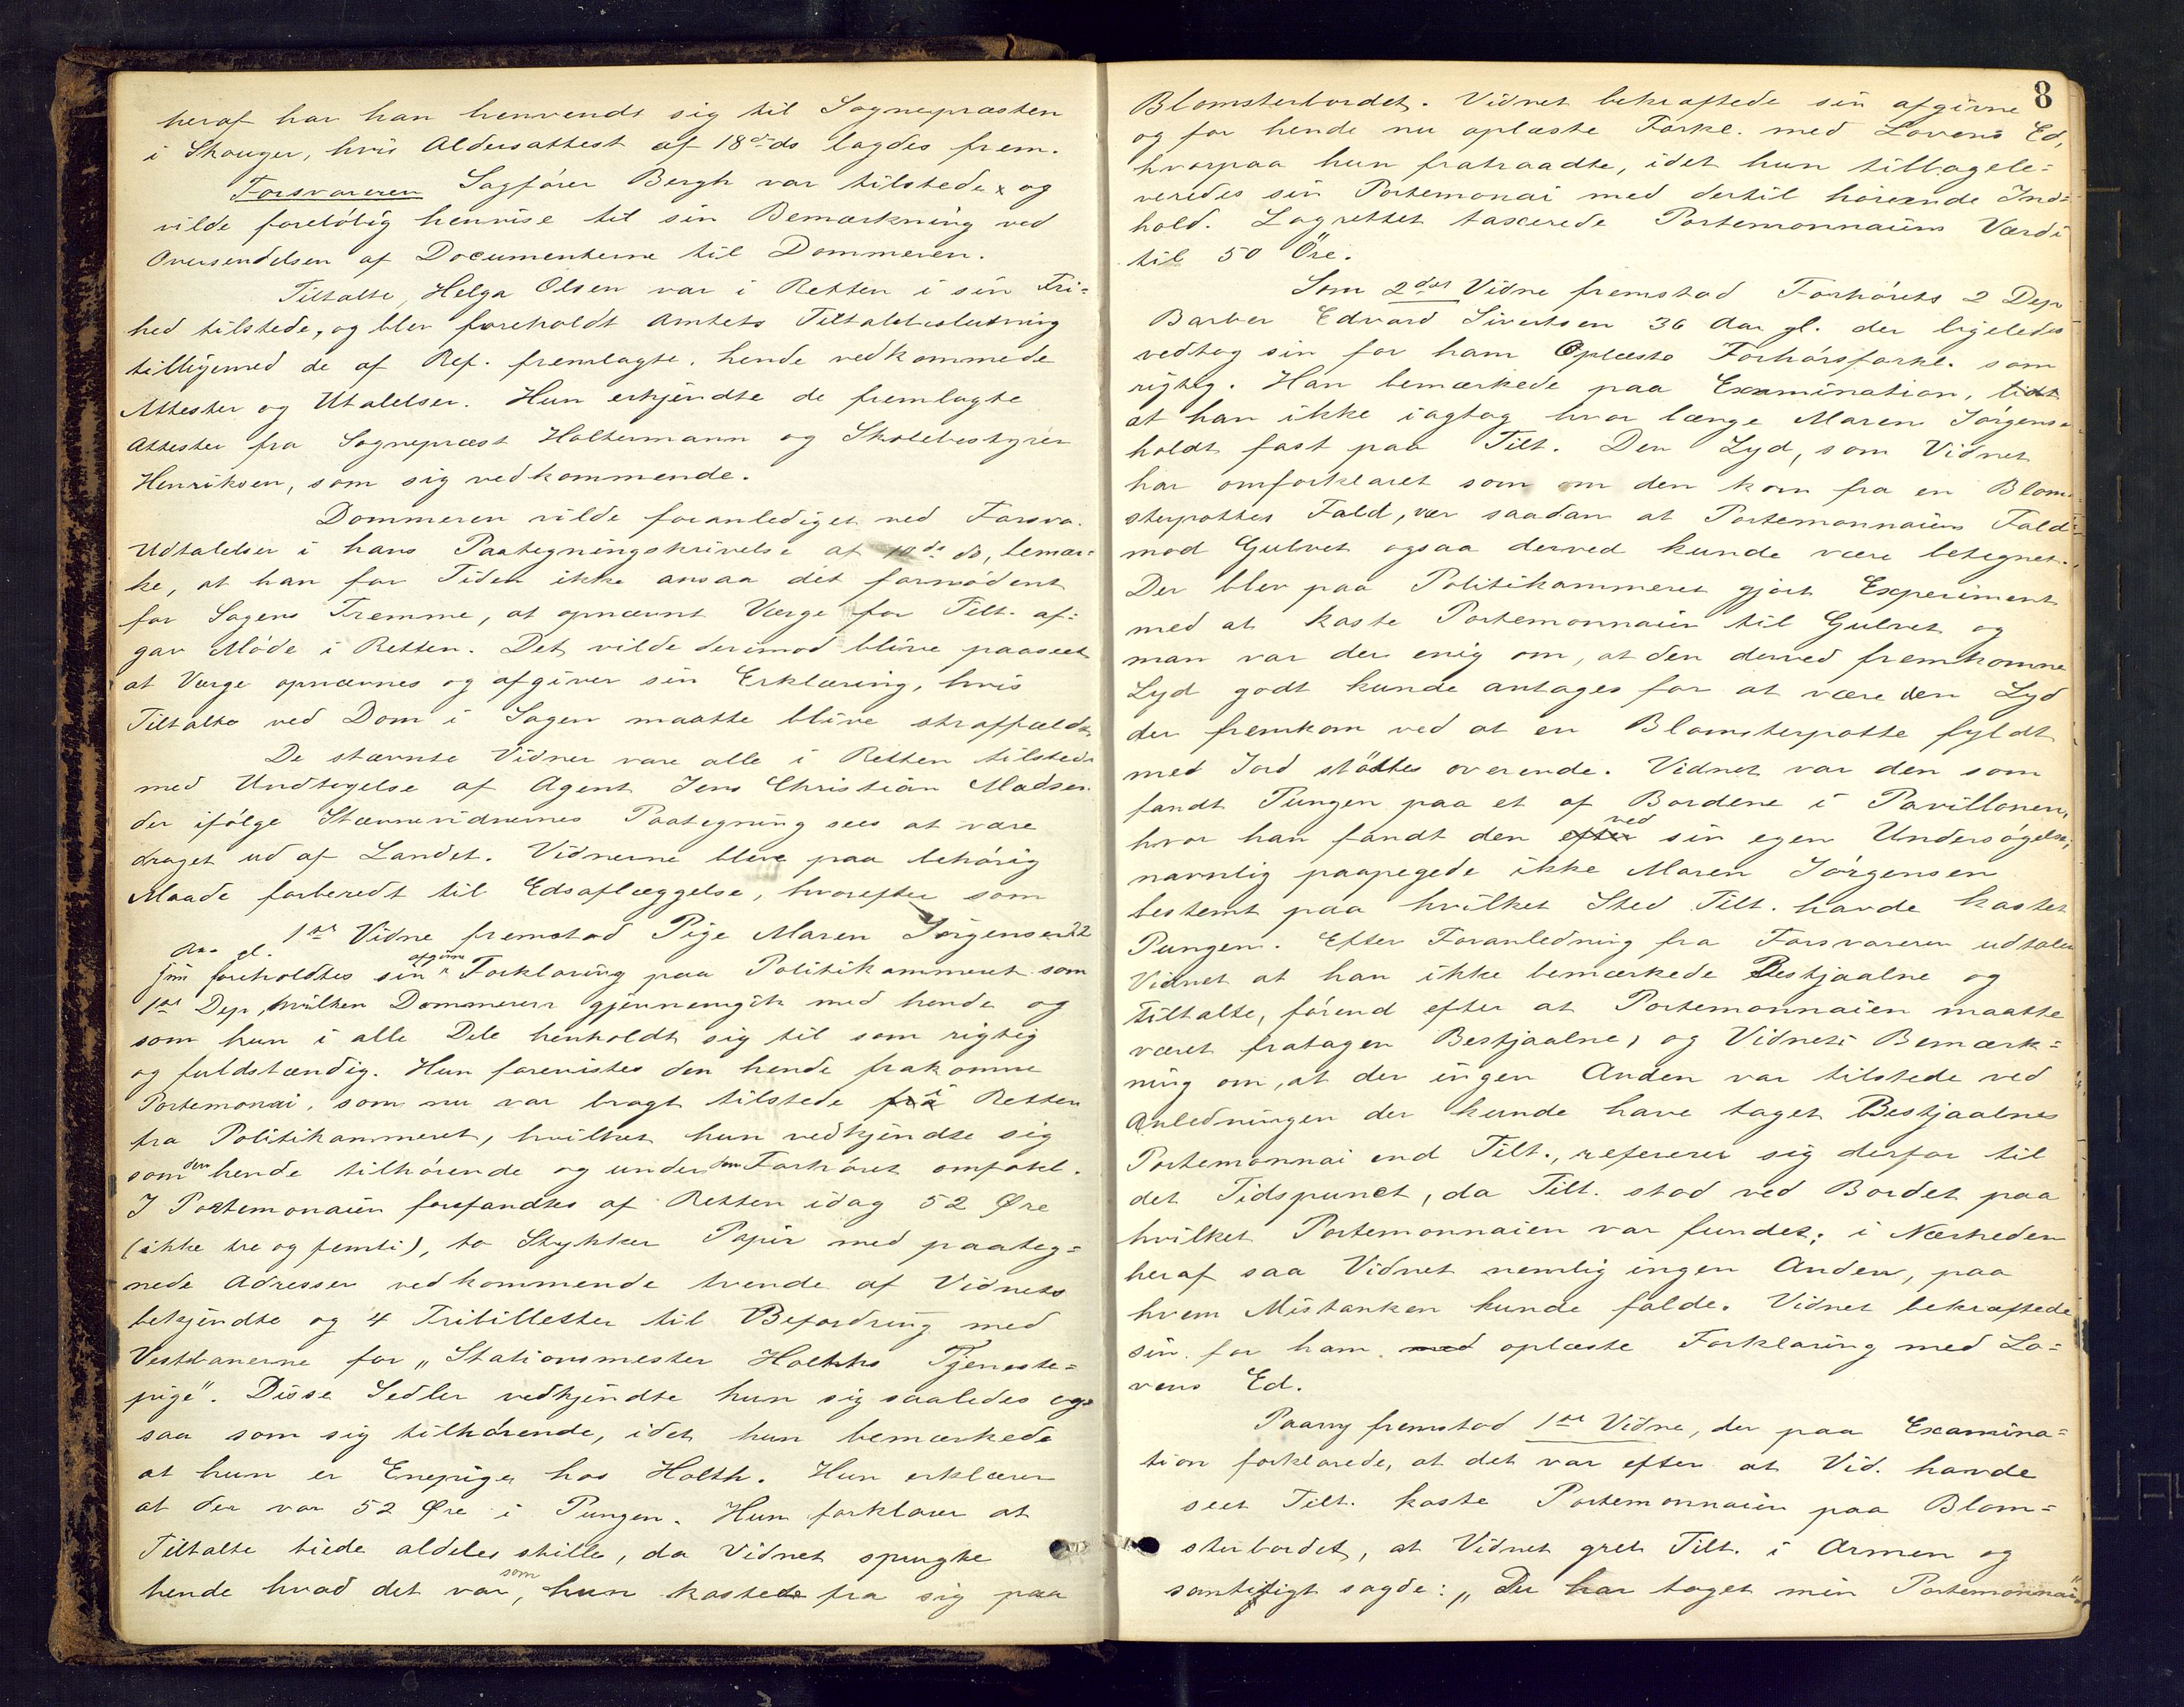 heraf har han henvendt sig til Sognepræsten
i Skouger, hvis Aldersattest af 18de ds lagdes frem.
Forsvareren Sagfører Bergh var tilstede og
vilde foreløbig henvise til sin Bemærkning ved
Oversendelsen af Documenterne til Dommeren.
Tiltalte, Helga Olsen var i Retten i sin Fri=
hed tilstede, og blev foreholdt Amtets Tiltalebeslutning
tilligemed de af Ref. fremlagte, hende vedkommede
Attester og Utalelser. Hun erkjendte de fremlagte
Attester fra Sognepræst Holtermann og Skolebestyrer
Henriksen, som sig vedkommende.
Dommeren vilde foranlediget ved Forsva.
Udtalelser i hans Paategningskrivelse af 10de ds, bemær=
ke, at han for Tiden ikke ansaa det fornødent
for Sagens Fremme, at opnævnt Værge for Tilt. af=
gav Møde i Retten. Det vilde derimod blive paaseet
at Værge opnævnes og afgiver sin Erklæring, hvis
Tiltalte ved Dom i Sagen maatte blive straffældt.
De stævnte Vidner vare alle i Retten tilstede
med Undtagelse af Agent Jens Christian Madsen
der ifølge Stævnevidnernes Paategning sees at være
draget ud af Landet. Vidnerne bleve paa behørig
Maade forberedt til Edsaflæggelse, hvorefter som
1ste Vidne fremstod Pige Maren Jørgensen 22
Aar gl.
foreholdtes sin afgivne Forklaring paa Politikammeret som
1ste Dep, hvilken Dommeren gjennemgik med hende og
som hun i alle Dele henholdt sig til som rigtig
og fuldstændig. Hun forevistes den hende frakomne
Portemonai, som nu var bragt tilstede fra i Retten
fra Politikammeret, hvilket hun vedkjendte sig
som den hende tilhørende og under Forhøret omfokl.
I Portemonaien forefandtes af Retten idag 52 Øre
(ikke tre og femti), to Stykker Papir med paateg=
nede Adresser vedkommende tvende af Vidnets
bekjendte og 4 Fribilletter til Befordring med
Vestbanerne for „Stationsmester Holths Tjeneste=
pige". Disse Sedler vedkjendte hun sig saaledes og=
saa som sig tilhørende, idet hun bemærkede
at hun er Enepige hos Holth. Hun erklærer
at der var 52 Øre i Pungen. Hun forklarer at
Tiltalte tiede aldeles stille, da Vidnet spurgte
hende hvad det var, som hun kastede fra sig paa
8
Blomsterbordet. Vidnet bekræftede sin afgivne
og for hende nu oplæste Forkl. med Lovens Ed,
hvorpaa hun fratraadte, idet hun tilbagele=
veredes sin Portemonai med dertil hørende Ind=
hold. Lagrettet taxerede Portemonnaiens Værdi
til 50 Öre.
Som 2det Vidne fremstod Forhørets 2 Dep
Barber Edvard Sivertsen 36 Aar gl. der ligeledes
vedtog sin for ham Oplæste Forhørsforkl. som
rigtig. Han bemærkede paa Examination,
at han ikke iagtog hvor længe Maren Jørgensen
holdt fast paa Tilt. Den Lyd, som Vidnet
har omforklaret som om den kom fra en Blom=
sterpottes Fald, var saadan at Portemonnaiens Fald
mod Gulvet ogsaa derved kunde være betegnet.
Der blev paa Politikammeret gjort Experiment
med at kaste Portemonnaien til Gulvet og
man var der enig om, at den derved fremkomne
Lyd godt kunde antages for at være den Lyd
der fremkom ved at en Blomsterpotte fyldt
med Jord stødtes overende. Vidnet var den som
fandt Pungen paa et af Bordene i Pavillonen,
hvor han fandt den efter ved sin egen Undersøgelse,
navnlig paapegede ikke Maren Jørgensen
bestemt paa hvilket Sted Tilt. havde kastet
Pungen. Efter Foranledning fra Forsvareren udtaler
Vidnet at han ikke bemærkede Bestjaalne og
Tiltalte, førend efter at Portemonnaien maatte
været fratagen Bestjaalne, og Vidnets Bemærk=
ning om, at der ingen Anden var tilstede ved
Anledningen der kunde have taget Bestjaalnes
Portemonnai end Tilt., refererer sig derfor til
det Tidspunct, da Tilt. stod ved Bordet paa
hvilket Portemonnaien var fundet; i Nærheden
heraf saa Vidnet nemlig ingen Anden, paa
hvem Mistanken kunde falde. Vidnet bekræftede
sin for ham med oplæste Forklaring med Lo=
vens Ed.
Paany fremstod 1ste Vidne, der paa Examina=
tion forklarede, at det var efter at Vid. havde
seet Tilt. kaste Portemonnaien paa Blom=
sterbordet, at Vidnet greb Tilt. i Armen og
samtidigt sagde: „Du har taget min Portemonnai"